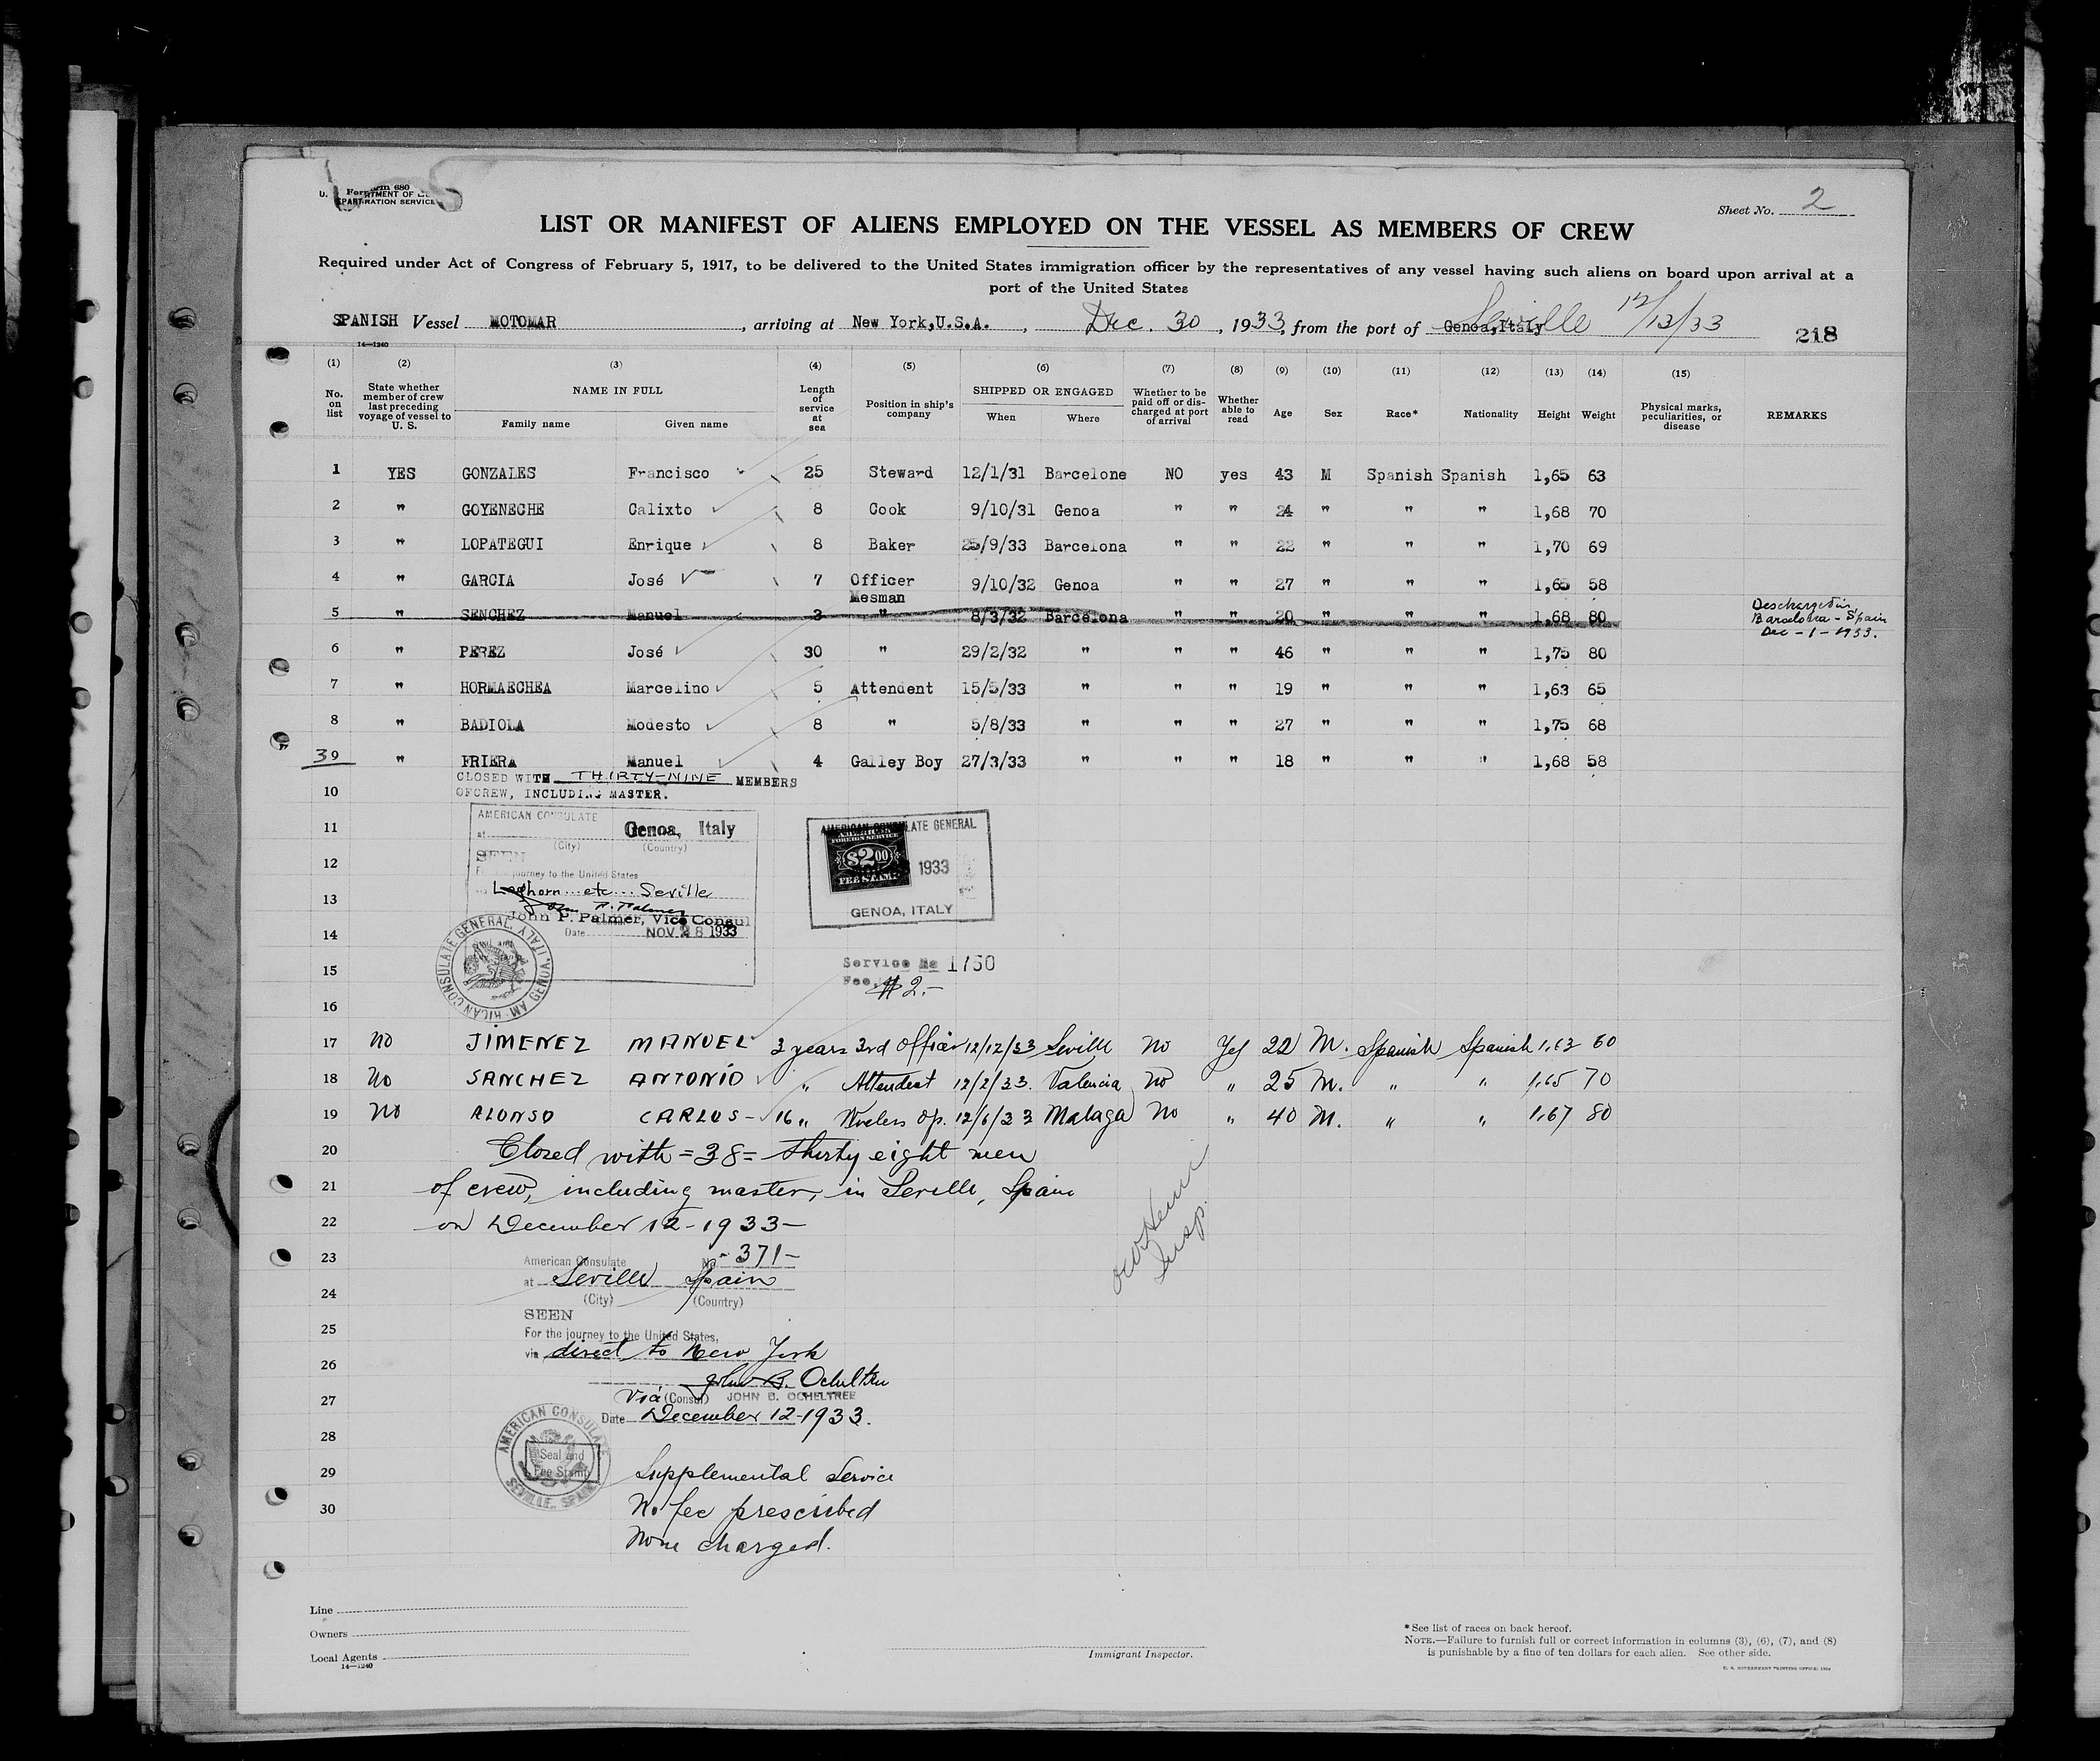 Form 680
Sheet No. 2
LIST OR MANIFEST OF ALIENS EMPLOYED ON THE VESSEL AS MEMBERS OF CREW
Required under Act of Congress of February 5, 1917, to be delivered to the United States immigration officer by the representatives of any vessel having such aliens on board upon arrival at a
port of the United States
SPANISH Vessel MOTOMAR, arriving at New York,U.S.A., Dec. 30, 1933, from the port of Genoa,Italy Seville 12/12/33
218
14—1240
(1) (2) (3) (4) (5) (6) (7) (8) (9) (10) (11) (12) (13) (14) (15)
No. on list State whether member of crew last preceding voyage of vessel to U. S. NAME IN FULL Family name Given name Length of service at sea Position in ship's company SHIPPED OR ENGAGED When Where Whether to be paid off or discharged at port of arrival Whether able to read Age Sex Race* Nationality Height Weight Physical marks, peculiarities, or disease REMARKS
1 YES GONZALES Francisco 25 Steward 12/1/31 Barcelone NO yes 43 M Spanish Spanish 1,65 63
2 " GOYENECHE Calixto 8 Cook 9/10/31 Genoa " " 24 " " " 1,68 70
3 " LOPATEGUI Enrique 8 Baker 25/9/33 Barcelona " " 22 " " " 1,70 69
4 " GARCIA José 7 Officer Mesman 9/10/32 Genoa " " 27 " " " 1,65 58
5 " SENCHEZ Manuel 3 " 8/3/32 Barcelona " " 20 " " " 1,68 80 Deschargedin Barcelona - Spain Dec - 1 - 1933.
6 " PEREZ José 30 " 29/2/32 " " " 46 " " " 1,75 80
7 " HORMAECHEA Marcelino 5 Attendent 15/5/33 " " " 19 " " " 1,63 65
8 " BADIOLA Modesto 8 " 5/8/33 " " " 27 " " " 1,75 68
39 " FRIERA Manuel 4 Galley Boy 27/3/33 " " " 18 " " " 1,68 58
CLOSED WITH THIRTY-NINE MEMBERS
10 OF CREW, INCLUDING MASTER.
AMERICAN CONSULATE
11 at Genoa, Italy
(City) (Country)
12 SEEN
For the journey to the United States
13 via Leghorn etc Seville
John P. Palmer, Vice Consul
14 Date NOV 28 1933
AMERICAN CONSULATE GENERAL GENOA, ITALY
AMERICAN CONSULATE GENERAL
AMERICAN FOREIGN SERVICE
$2.00 1933
FEE STAMP
GENOA, ITALY
15 Service No 1750
Fee $2.-
16
17 No JIMENEZ MANUEL 3 years 3rd Officer 12/12/33 Seville No Yes 22 M. Spanish Spanish 1,63 60
18 No SANCHEZ ANTONIO " Attendent 12/2/33. Valencia No " 25 M. " " 1,65 70
19 No ALONSO CARLOS - 16 " Wireless Op. 12/6/33 Malaga No " 40 M. " " 1,67 80
20 Closed with = 38 = thirty eight men
21 of crew, including master, in Seville, Spain
22 on December 12 - 1933 -
23 American Consulate No - 371 -
at Seville Spain
24 (City) (Country)
SEEN
25 For the journey to the United States,
26 via direct to New York
John B. Ocheltree
27 Vice (Consul) JOHN B. OCHELTREE
Date December 12-1933.
28
AMERICAN CONSULATE SEVILLE, SPAIN
Seal and
Fee Stamp
29 Supplemental Service
30 No fee prescribed
None charged.
Insp.
Line
Owners
Local Agents
14—1240
Immigrant Inspector.
* See list of races on back hereof.
NOTE.—Failure to furnish full or correct information in columns (3), (6), (7), and (8)
is punishable by a fine of ten dollars for each alien. See other side.